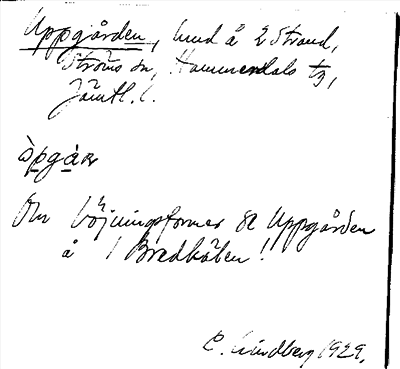 Uppgården, hmd å 2 Strand,
Ströms sn, Hammerdals tg,
Jämtl. l.
òpgàɳ
Om böjningsformer se Uppgården
å 1 Bredkälen!
E. Lindberg 1929.